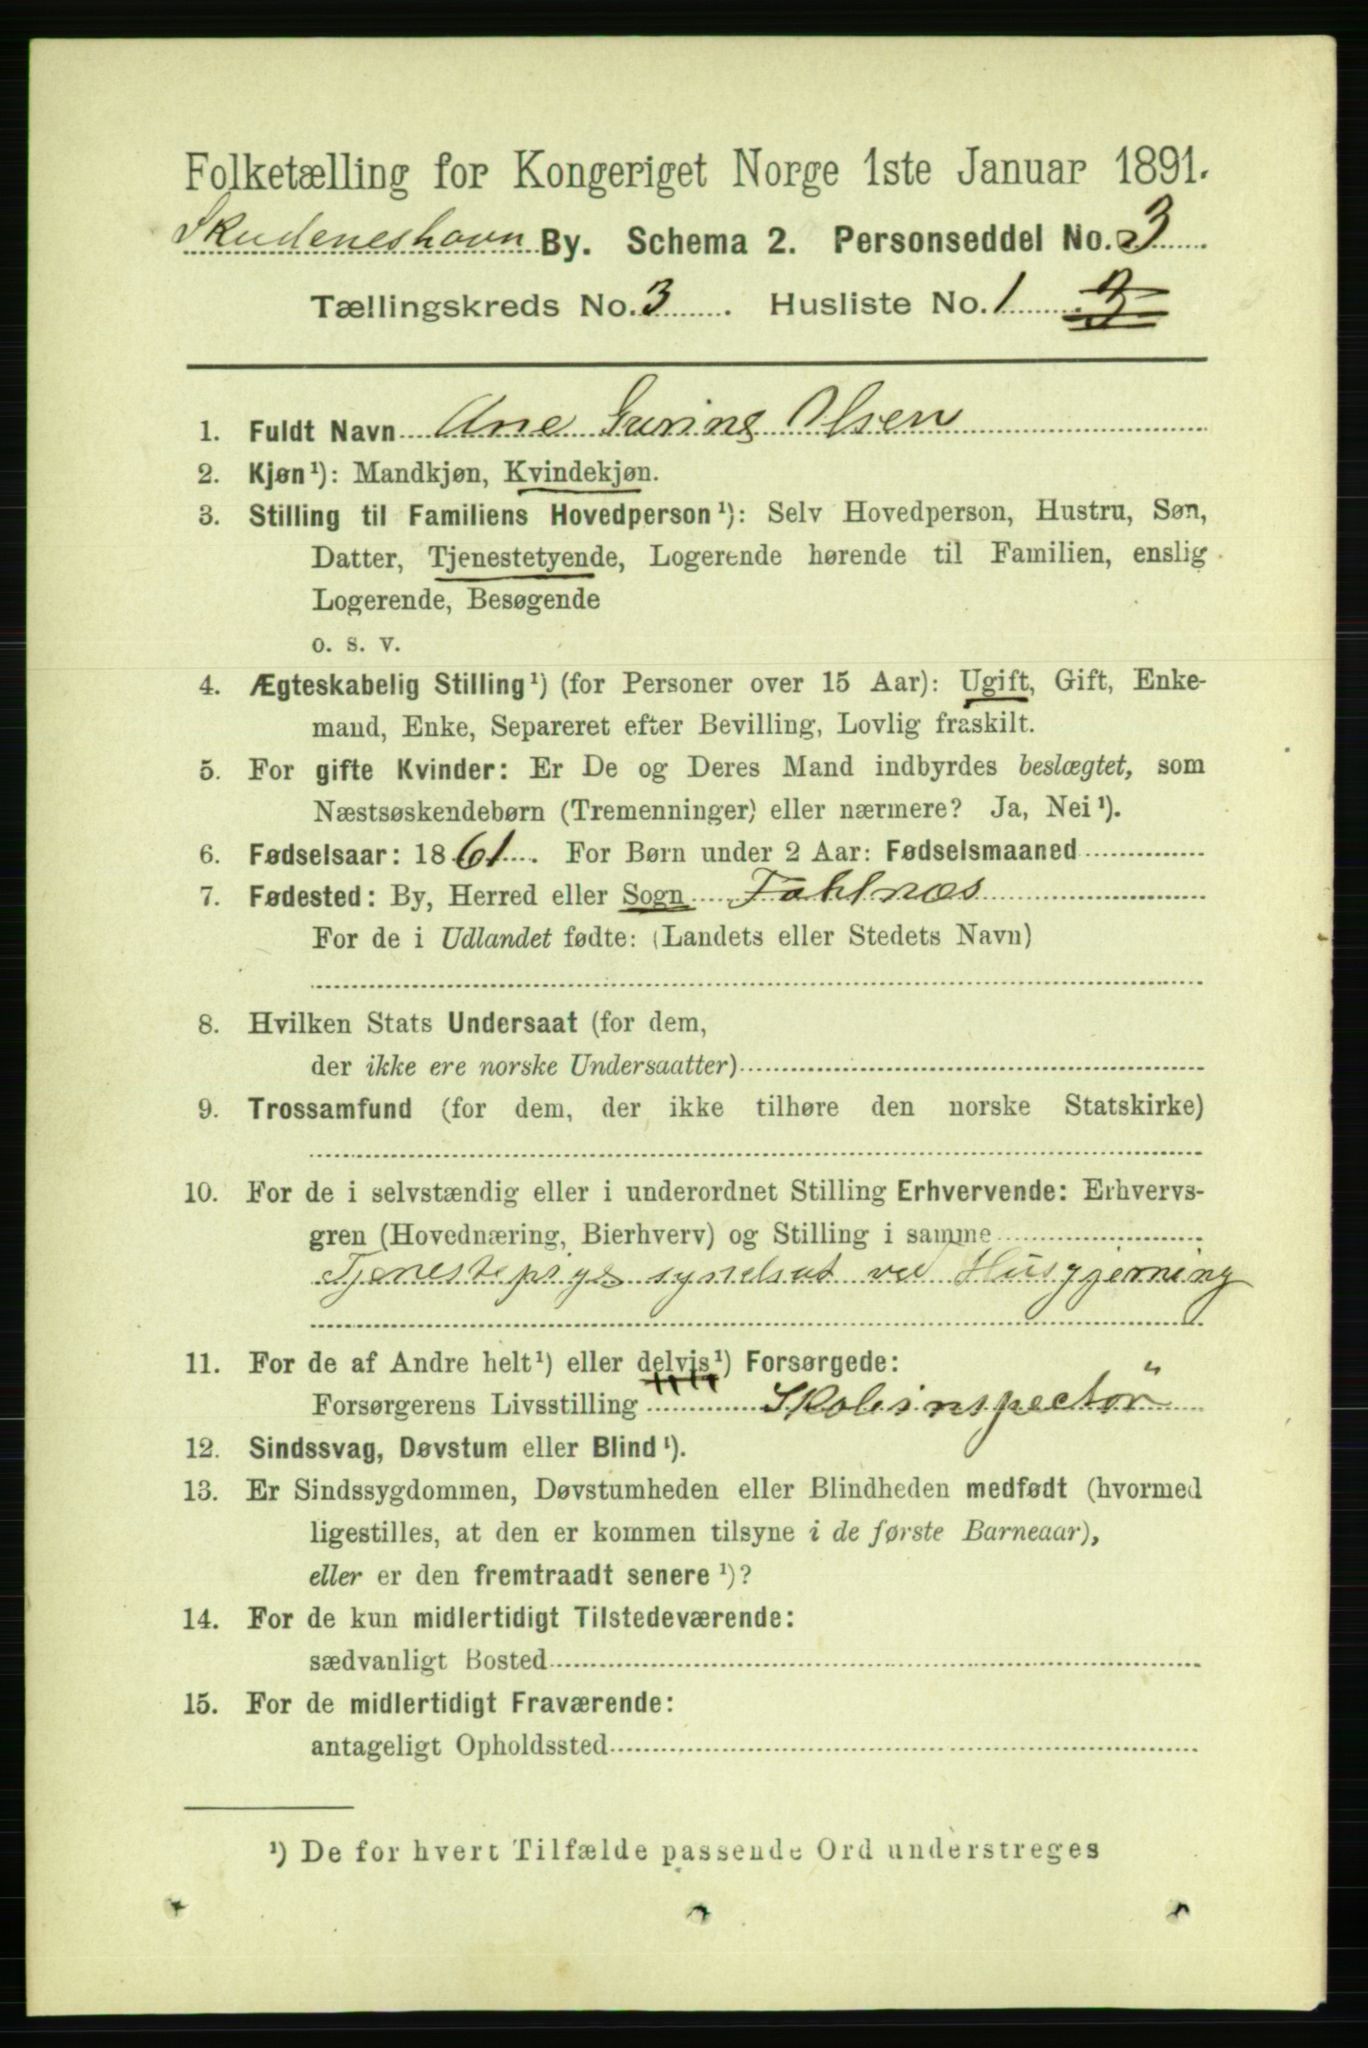 Folketælling for Kongeriget Norge 1ste Januar 1891.
Skudeneshavn By. Schema 2. Personseddel No. 3
Tællingskreds No. 3. Husliste No. 1 3
1. Fuldt Navn Ane Gurine Olsen
2. Kjøn¹): Mandkjøn, Kvindekjøn.
3. Stilling til Familiens Hovedperson¹): Selv Hovedperson, Hustru, Søn,
Datter, Tjenestetyende, Logerende hørende til Familien, enslig
Logerende, Besøgende
o. s. v.
4. Ægteskabelig Stilling¹) (for Personer over 15 Aar): Ugift, Gift, Enke-
mand, Enke, Separeret efter Bevilling, Lovlig fraskilt.
5. For gifte Kvinder: Er De og Deres Mand indbyrdes beslægtet, som
Næstsøskendebørn (Tremenninger) eller nærmere? Ja, Nei¹).
6. Fødselsaar: 1861. For Børn under 2 Aar: Fødselsmaaned
7. Fødested: By, Herred eller Sogn Fahlnæs
For de i Udlandet fødte: (Landets eller Stedets Navn)
8. Hvilken Stats Undersaat (for dem,
der ikke ere norske Undersaatter)
9. Trossamfund (for dem, der ikke tilhøre den norske Statskirke)
10. For de i selvstændig eller i underordnet Stilling Erhvervende: Erhvervs-
gren (Hovednæring, Bierhverv) og Stilling i samme
Tjenestepige sysselsat ved Husgjerning
11. For de af Andre helt¹) eller delvis¹) Forsørgede:
Forsørgerens Livsstilling Skoleinspectör
12. Sindssvag, Døvstum eller Blind¹).
13. Er Sindssygdommen, Døvstumheden eller Blindheden medfødt (hvormed
ligestilles, at den er kommen tilsyne i de første Barneaar),
eller er den fremtraadt senere¹)?
14. For de kun midlertidigt Tilstedeværende:
sædvanligt Bosted
15. For de midlertidigt Fraværende:
antageligt Opholdssted
¹) De for hvert Tilfælde passende Ord understreges